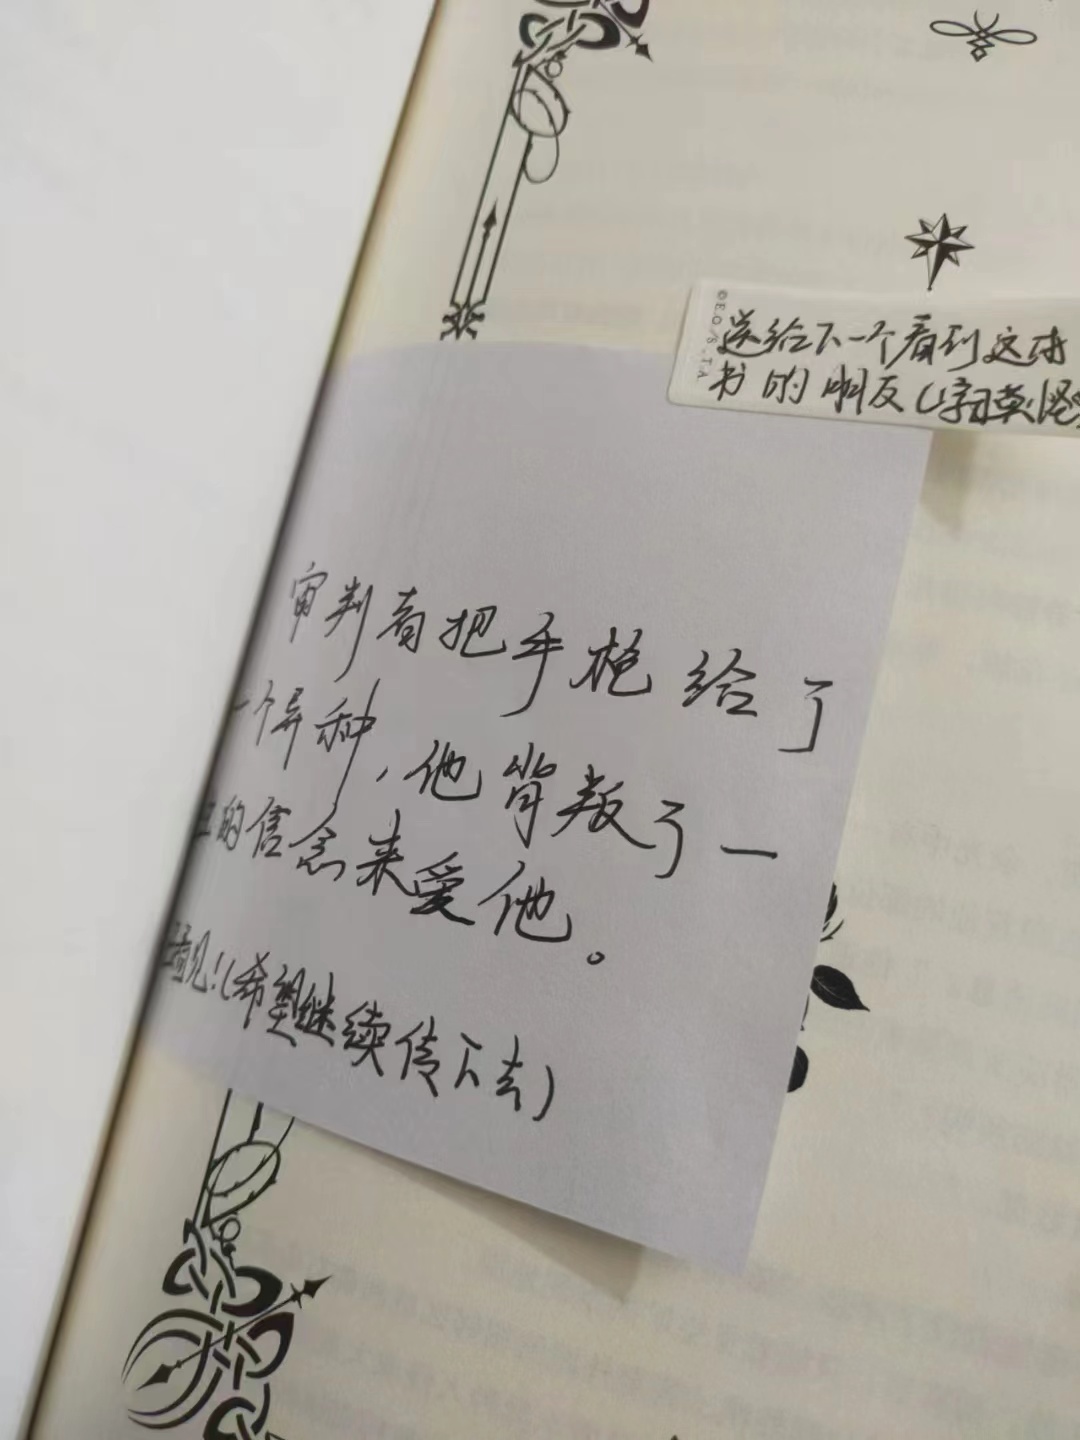 ©E.G/S.T.A.
送给下一个看到这本
书的朋友(字丑莫怪
审判者把手枪给了
一个异种,他背叛了一
的信念来爱他。
见!(希望继续传下去)